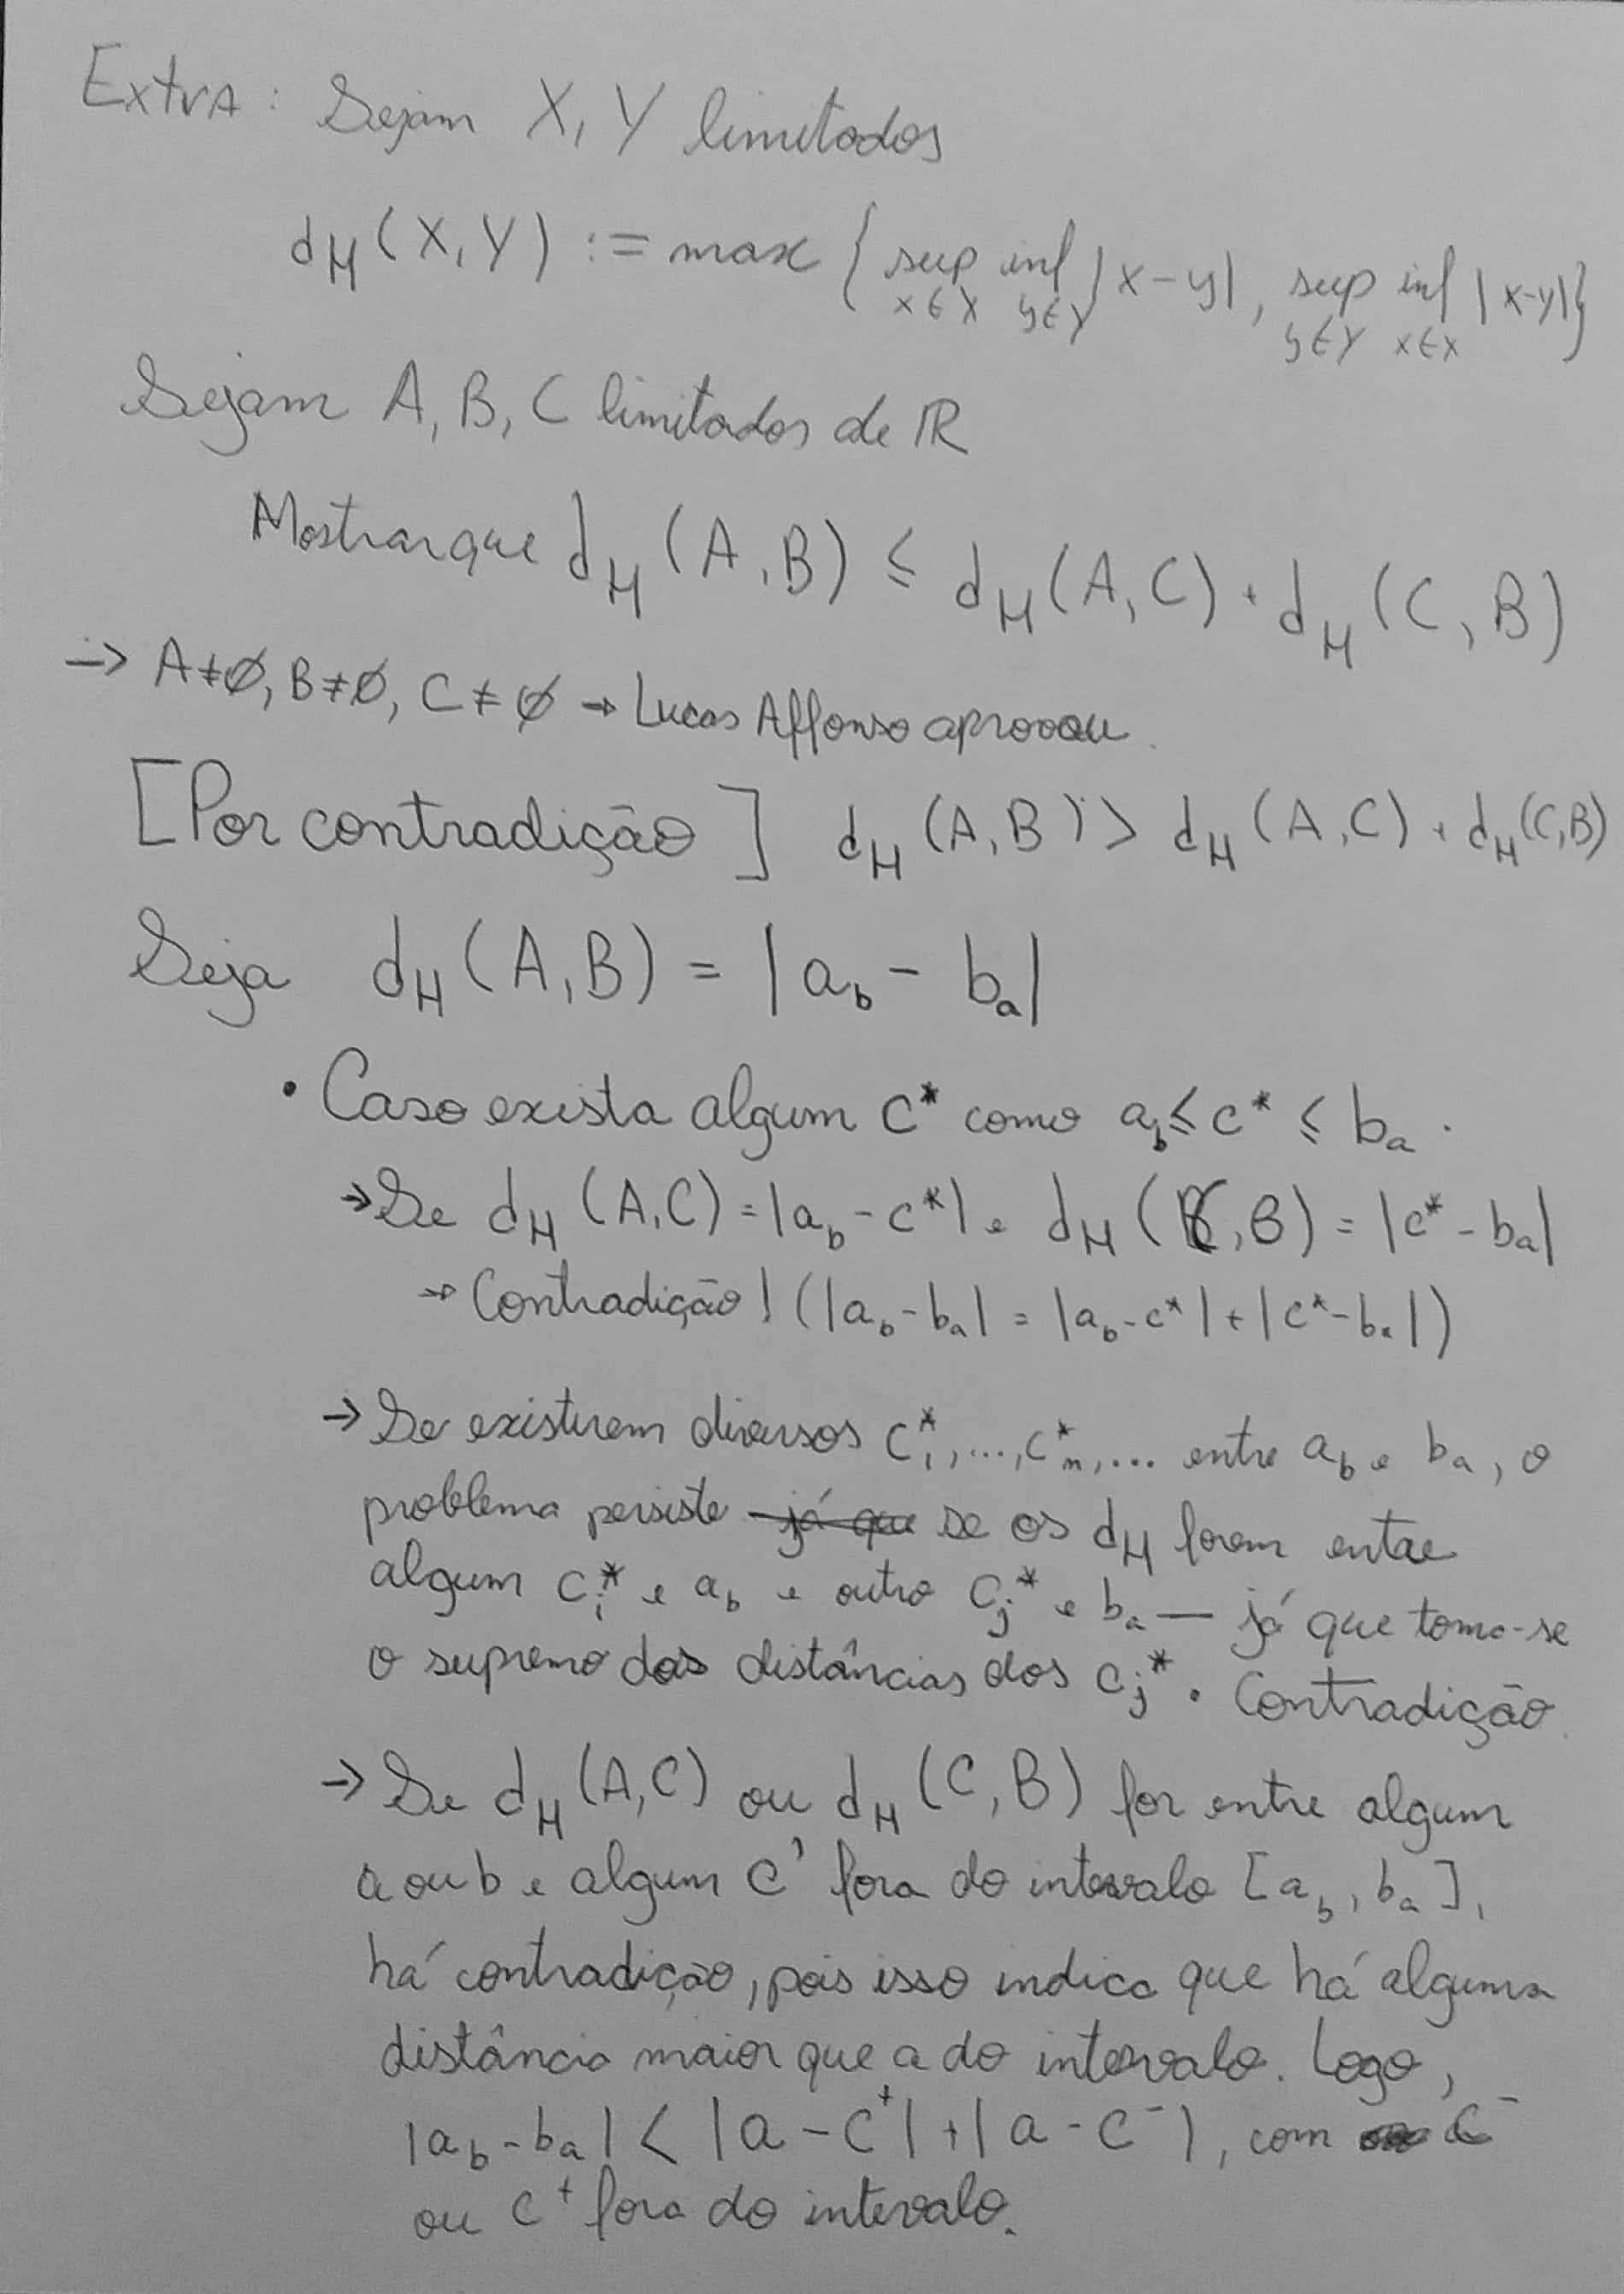 Extra: Sejam X, Y limitados
d_H(X,Y) := max { sup_{x∈X} inf_{y∈Y} |x-y|, sup_{y∈Y} inf_{x∈X} |x-y| }
Sejam A, B, C limitados de ℝ
Mostrar que d_H(A,B) ≤ d_H(A,C) + d_H(C,B)
→ A≠∅, B≠∅, C≠∅ → Lucas Affonso aprovou.
[Por contradição] d_H(A,B) > d_H(A,C) + d_H(C,B)
Seja d_H(A,B) = |a_b - b_a|
• Caso exista algum c* como a_b ≤ c* ≤ b_a.
→ Se d_H(A,C) = |a_b - c*| e d_H(C,B) = |c* - b_a|
→ Contradição! (|a_b - b_a| = |a_b - c*| + |c* - b_a|)
→ Se existirem diversos c_1*, ..., c_n*, ... entre a_b e b_a, o
problema persiste já que se os d_H forem entre
algum c_i* e a_b e outro c_j* e b_a — já que toma-se
o supremo das distâncias dos c_j*. Contradição.
→ Se d_H(A,C) ou d_H(C,B) for entre algum
a ou b e algum c' fora do intervalo [a_b, b_a],
há contradição, pois isso indica que há alguma
distância maior que a do intervalo. Logo,
|a_b - b_a| < |a - c⁺| + |a - c⁻|, com c⁻
ou c⁺ fora do intervalo.